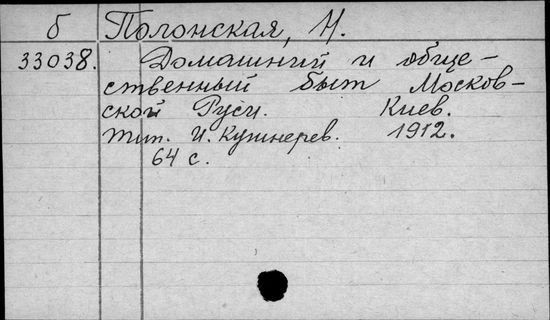 б Полонская, Н.
33038. Домашний и обще-
ственный быт Москов-
ской Руси. Киев.
тип. И. Кушнерев. 1912.
64 с.